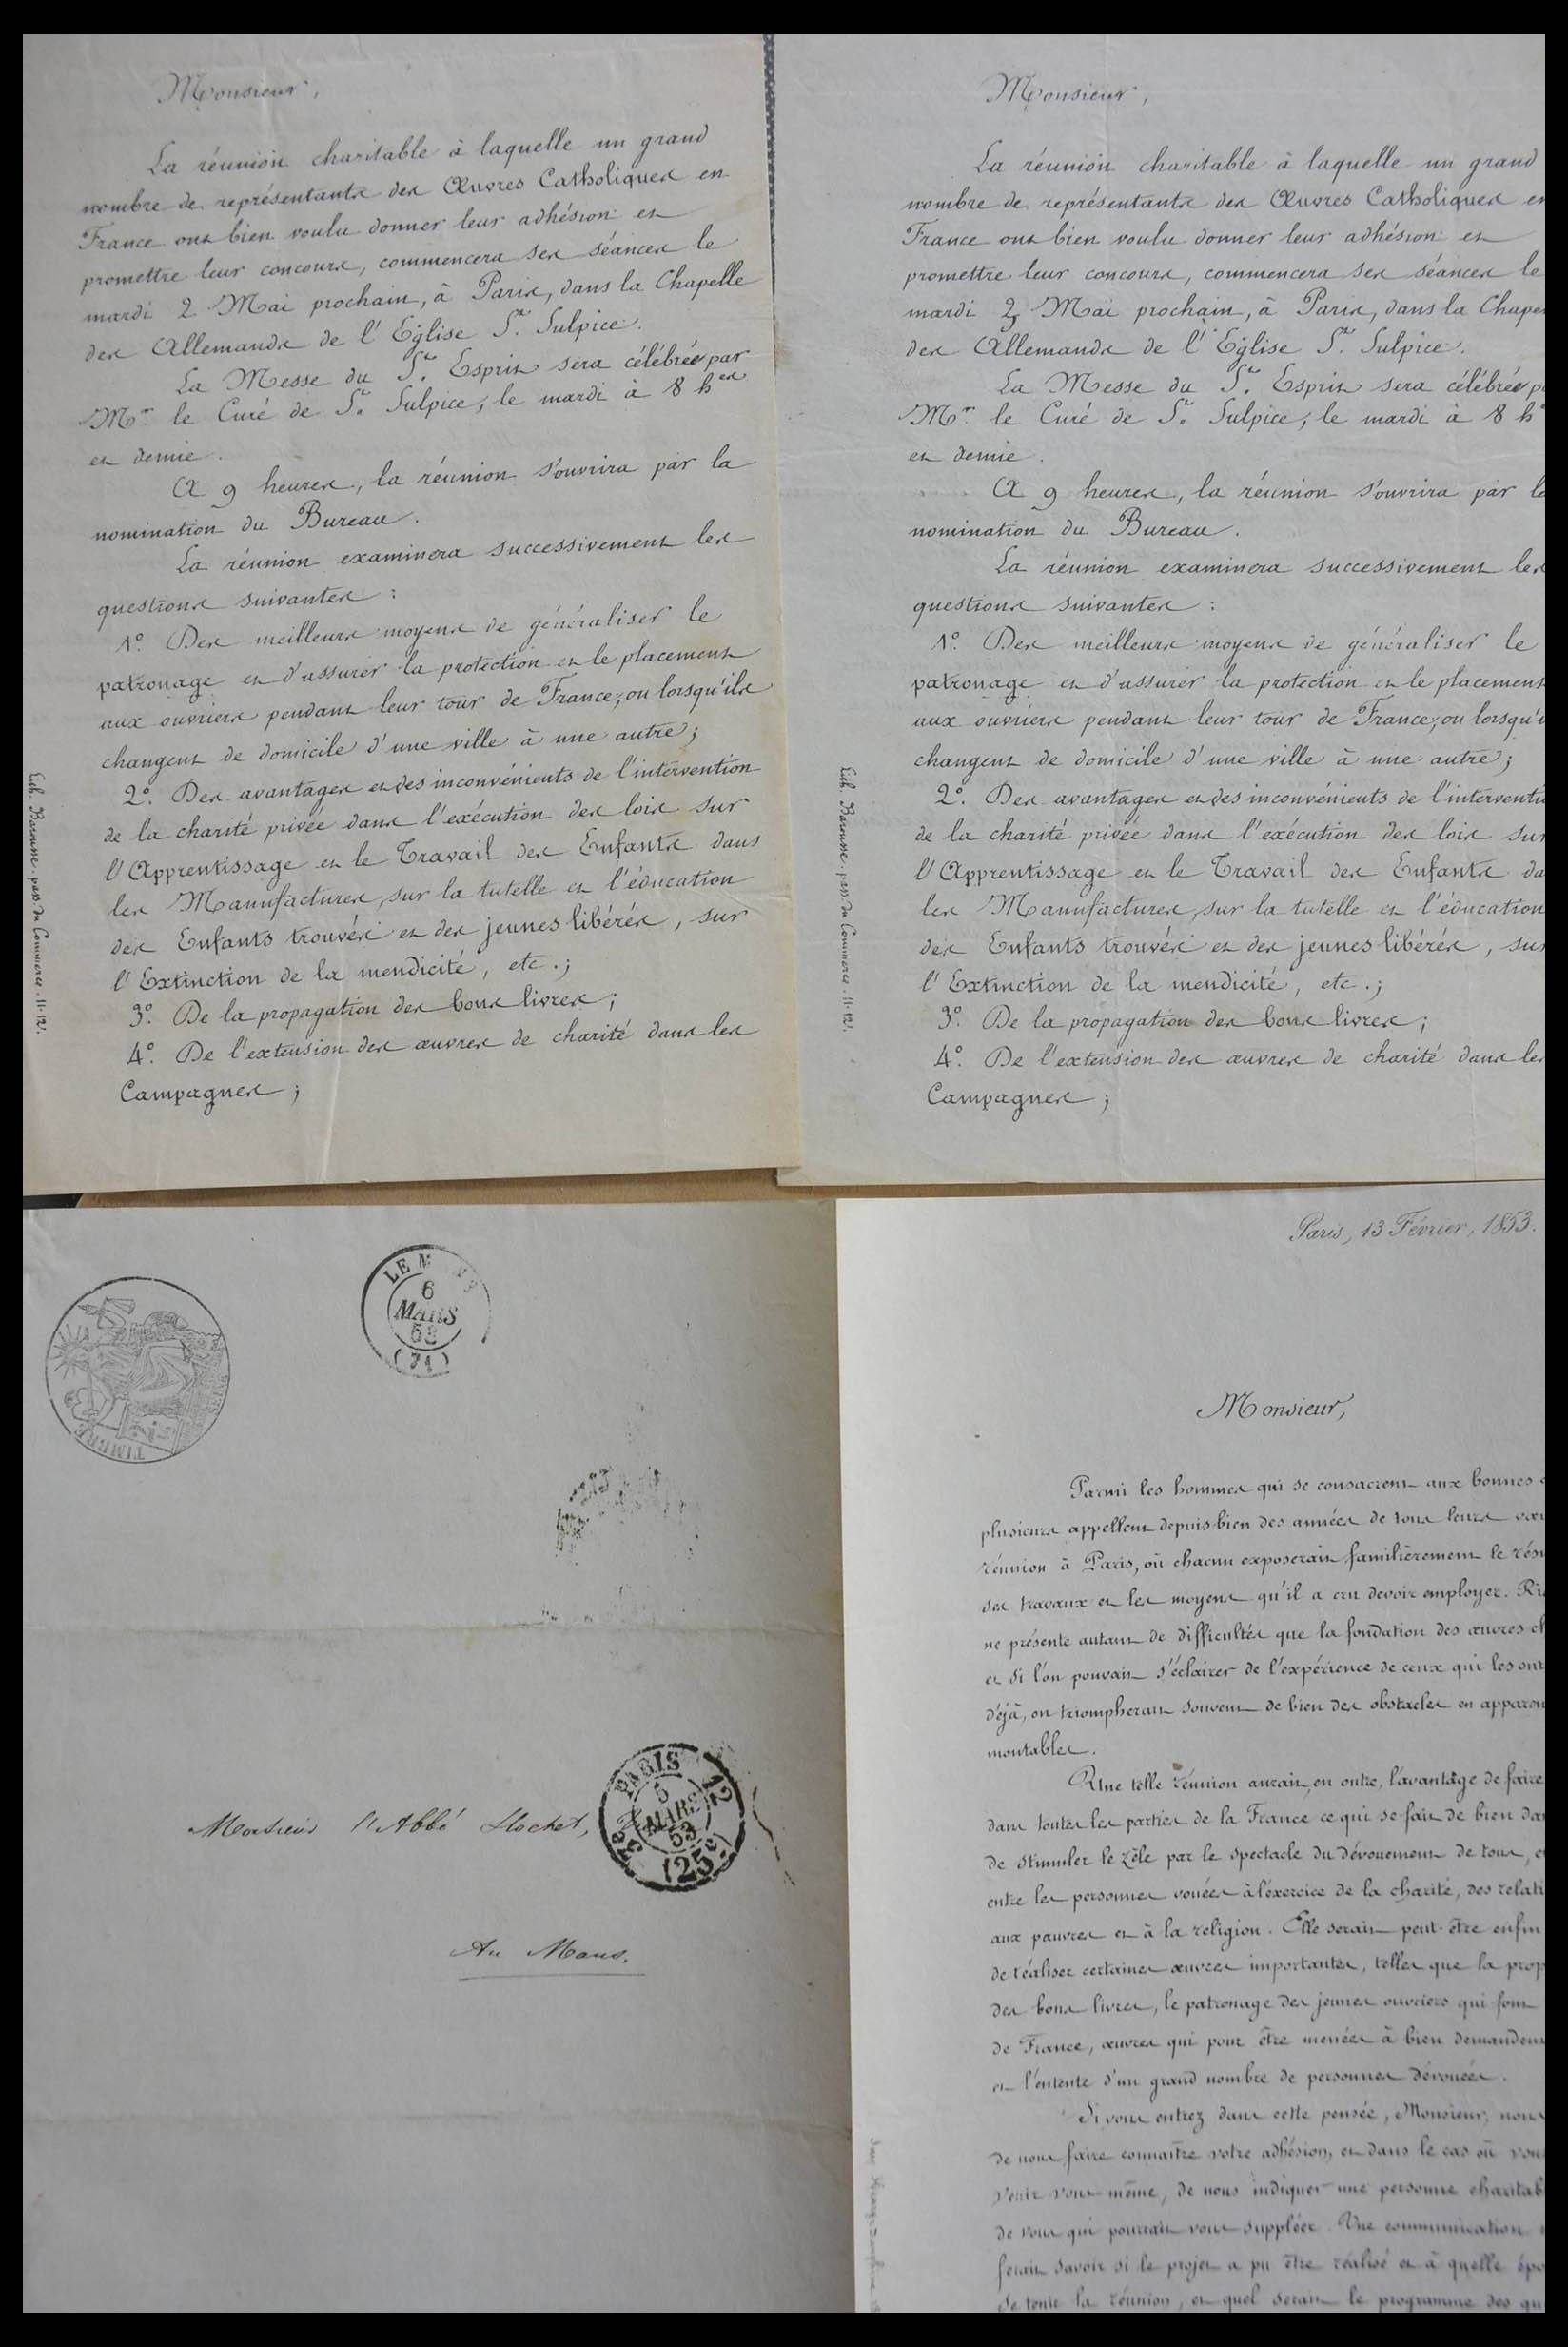 Monsieur,
La réunion charitable à laquelle un grand
nombre de représentants des Œuvres Catholiques en
France ont bien voulu donner leur adhésion et
promettre leur concours, commencera ses séances le
mardi 2 Mai prochain, à Paris, dans la Chapelle
des Allemands de l'Eglise St. Sulpice.
La Messe du St. Esprit sera célébrée par
Mr. le Curé de St. Sulpice, le mardi à 8 hes
et demie.
A 9 heures, la réunion s'ouvrira par la
nomination du Bureau.
La réunion examinera successivement les
questions suivantes :
1º. Des meilleurs moyens de généraliser le
patronage et d'assurer la protection et le placement
aux ouvriers pendant leur tour de France, ou lorsqu'ils
changent de domicile d'une ville à une autre ;
2º. Des avantages et des inconvénients de l'intervention
de la charité privée dans l'exécution des lois sur
l'Apprentissage et le Travail des Enfants dans
les Manufactures, sur la tutelle et l'éducation
des Enfants trouvés et des jeunes libérés, sur
l'Extinction de la mendicité, etc. ;
3º. De la propagation des bons livres ;
4º. De l'extension des œuvres de charité dans les
Campagnes ;
Lith. Barousse. pass. du Commerce. 11-12.
Monsieur,
La réunion charitable à laquelle un grand
nombre de représentants des Œuvres Catholiques en
France ont bien voulu donner leur adhésion et
promettre leur concours, commencera ses séances le
mardi 2 Mai prochain, à Paris, dans la Chape
des Allemands de l'Eglise St. Sulpice.
La Messe du St. Esprit sera célébrée p
Mr. le Curé de St. Sulpice, le mardi à 8 h
et demie.
A 9 heures, la réunion s'ouvrira par la
nomination du Bureau.
La réunion examinera successivement les
questions suivantes :
1º. Des meilleurs moyens de généraliser le
patronage et d'assurer la protection et le placement
aux ouvriers pendant leur tour de France, ou lorsqu'i
changent de domicile d'une ville à une autre ;
2º. Des avantages et des inconvénients de l'interventi
de la charité privée dans l'exécution des lois sur
l'Apprentissage et le Travail des Enfants da
les Manufactures, sur la tutelle et l'éducation
des Enfants trouvés et des jeunes libérés, sur
l'Extinction de la mendicité, etc. ;
3º. De la propagation des bons livres ;
4º. De l'extension des œuvres de charité dans les
Campagnes ;
Lith. Barousse. pass. du Commerce. 11-12.
TIMBRE
LE M
6
MARS
53
(71)
PARIS
5
MARS
53
(25c)
Monsieur l'Abbé Lochet,
Au Mans.
Paris, 13 Février, 1853.
Monsieur,
Parmi les hommes qui se consacrent aux bonnes
plusieurs appellent depuis bien des années de tous leurs vœu
réunion à Paris, où chacun exposerait familièrement le rés
ses travaux et les moyens qu'il a cru devoir employer. Ri
ne présente autant de difficultés que la fondation des œuvres ch
et si l'on pouvait s'éclairer de l'expérience de ceux qui les ont
déjà, on triompherait souvent de bien des obstacles en apparen
montables.
Une telle réunion aurait, en outre, l'avantage de faire
dans toutes les parties de la France ce qui se fait de bien da
de stimuler le zèle par le spectacle du dévouement de tous, e
entre les personnes vouées à l'éxercice de la charité, des relati
aux pauvres et à la religion. Elle serait peut-être enfin
de réaliser certaines œuvres importantes, telles que la prop
des bons livres, le patronage des jeunes ouvriers qui font
de France, œuvres qui pour être menées à bien demandent
et l'entente d'un grand nombre de personnes dévouées.
Si vous entrez dans cette pensée, Monsieur, nous
de nous faire connaître votre adhésion, et dans le cas où vous
venir vous même, de nous indiquer une personne charitab
de vous qui pourrait vous suppléer. Une communication
ferait savoir si le projet a pu être réalisé et à quelle épo
se tenir la réunion, et quel serait le programme des qu